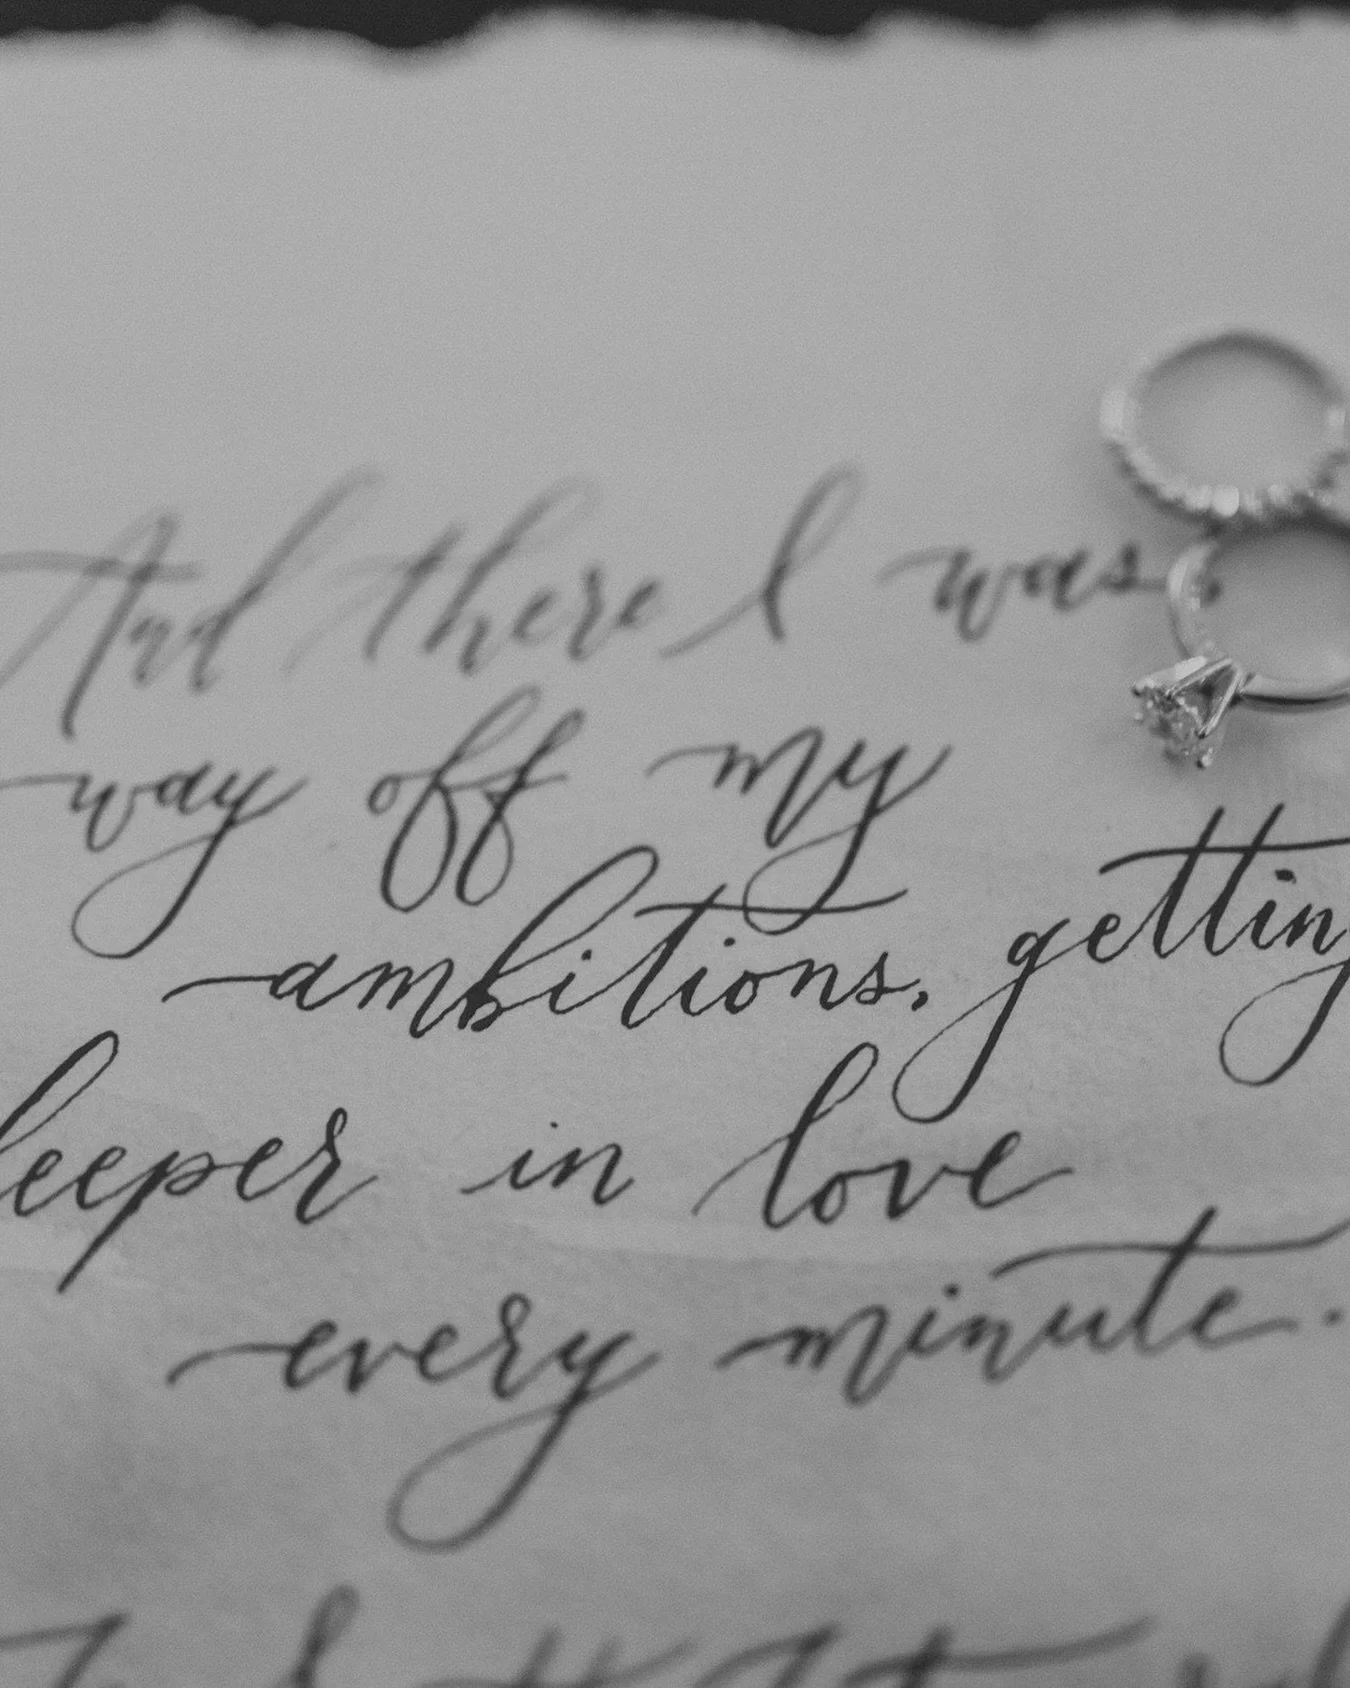 And there I was,
way off my
ambitions, getting
deeper in love
every minute.